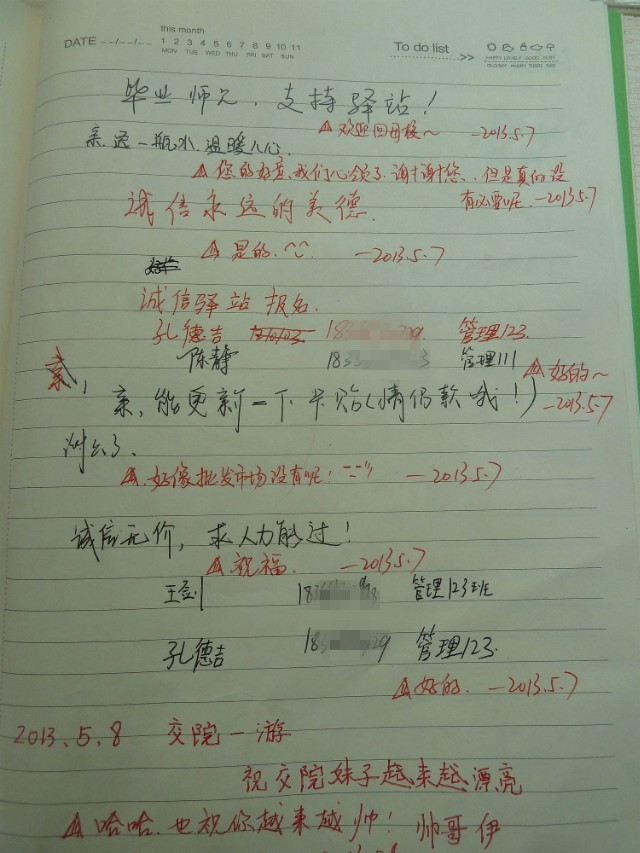 this month
DATE --/--/-- 1 2 3 4 5 6 7 8 9 10 11
MON TUE WED THU FRI SAT SUN
To do list >>
毕业师兄，支持驿站！
△欢迎回母校～ —2013.5.7
亲,送一瓶水,温暖人心.
△您的好意,我们心领了.谢谢您..但是真的没
有必要呢.—2013.5.7
诚信永远的美德.
△是的. —2013.5.7
诚信驿站报名.
孔德吉 管理123.
陈静 管理111
△好的～
—2013.5.7
亲,
亲,能更新一下卡贴(情侣款哦!)
谢谢了.
△好像批发市场没有呢! —2013.5.7
诚信无价，求人力能过！
△祝福. —2013.5.7
管理123班
孔德吉 管理123.
△好的. —2013.5.7
2013.5.8 交院一游
祝交院妹子越来越漂亮
△哈哈.也祝你越来越帅! 帅哥伊